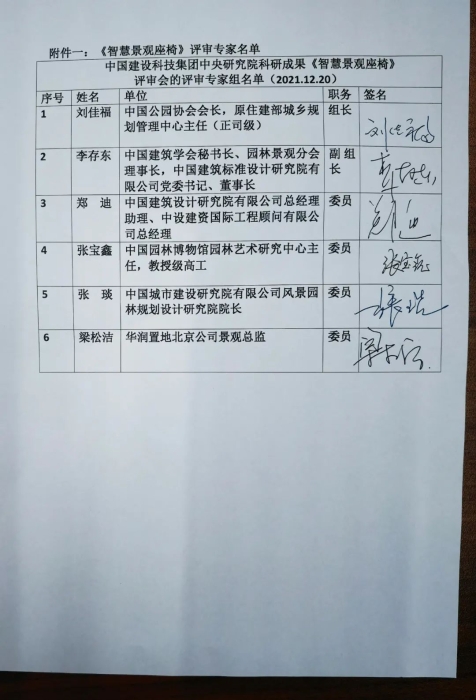 附件一：《智慧景观座椅》评审专家名单
中国建设科技集团中央研究院科研成果《智慧景观座椅》
评审会的评审专家组名单（2021.12.20）
序号 姓名 单位 职务 签名
1 刘佳福 中国公园协会会长，原住建部城乡规 组长 刘佳福
划管理中心主任（正司级）
2 李存东 中国建筑学会秘书长、园林景观分会 副 组
理事长，中国建筑标准设计研究院有 长
限公司党委书记、董事长
3 郑 迪 中国建筑设计研究院有限公司总经理 委员 郑迪
助理、中设建资国际工程顾问有限公
司总经理
4 张宝鑫 中国园林博物馆园林艺术研究中心主 委员 张宝鑫
任，教授级高工
5 张 琰 中国城市建设研究院有限公司风景园 委员
林规划设计研究院院长
6 梁松洁 华润置地北京公司景观总监 委员